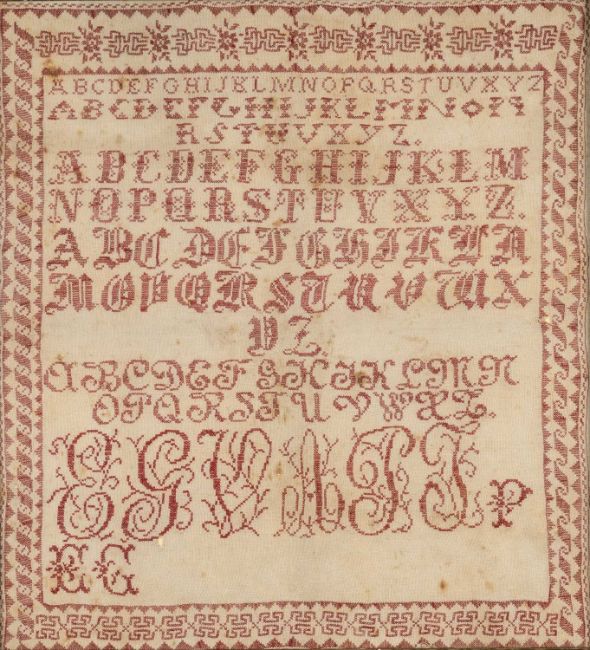 A B C D E F G H I J K L M N O P Q R S T U V X Y Z
A B C D E F G H I J K L M N O P
R S T U V X Y Z.
A B C D E F G H I J K L M
N O P Q R S T U V X Y Z.
A B C D E F G H I K L
M O P Q R S T U V W X
Y Z.
A B C D E F G H I K L M N
O P Q R S T U V W X Z.
E G V A I P
E G